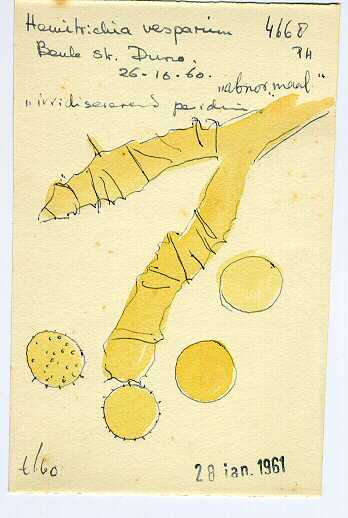 Hemitrichia vesparium 4668
Beule St. Duno. PH
26-10-60.
"abnormaal"
"irridiscerend peridium
t/60
28 jan. 1961